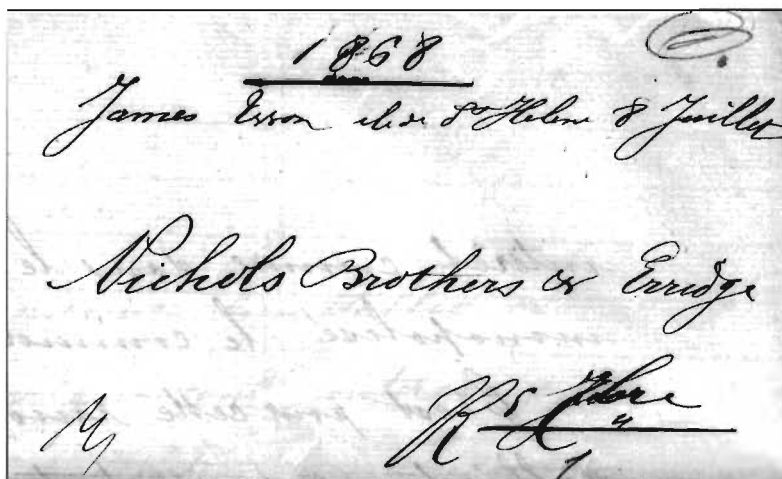 1868
James Esson ile de Ste Helene 8 Juillet
Nichols Brothers & Erridge
R